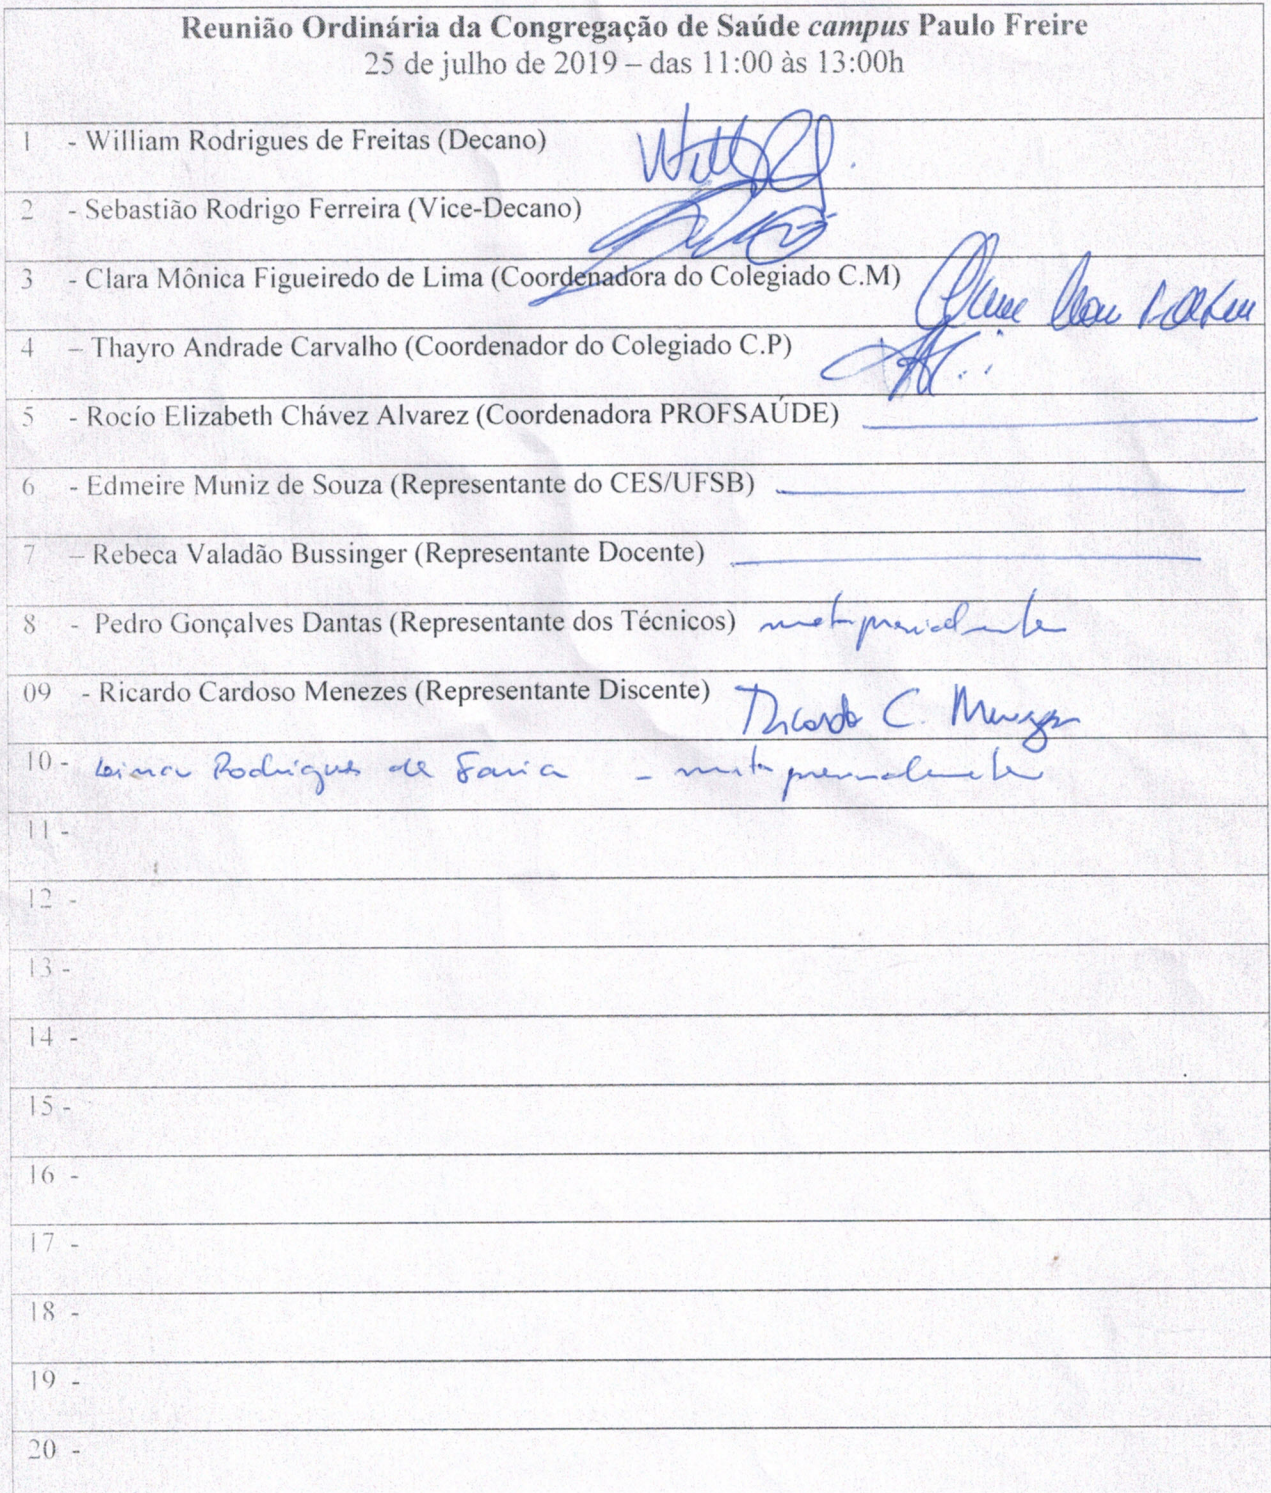 Reunião Ordinária da Congregação de Saúde campus Paulo Freire
25 de julho de 2019 – das 11:00 às 13:00h
1 - William Rodrigues de Freitas (Decano)
2 - Sebastião Rodrigo Ferreira (Vice-Decano)
3 - Clara Mônica Figueiredo de Lima (Coordenadora do Colegiado C.M)
4 – Thayro Andrade Carvalho (Coordenador do Colegiado C.P)
5 - Rocío Elizabeth Chávez Alvarez (Coordenadora PROFSAÚDE)
6 - Edmeire Muniz de Souza (Representante do CES/UFSB)
7 – Rebeca Valadão Bussinger (Representante Docente)
8 - Pedro Gonçalves Dantas (Representante dos Técnicos)
09 - Ricardo Cardoso Menezes (Representante Discente) Ricardo C. Menezes
10 - Rodrigues de Faria -
11 -
12 -
13 -
14 -
15 -
16 -
17 -
18 -
19 -
20 -